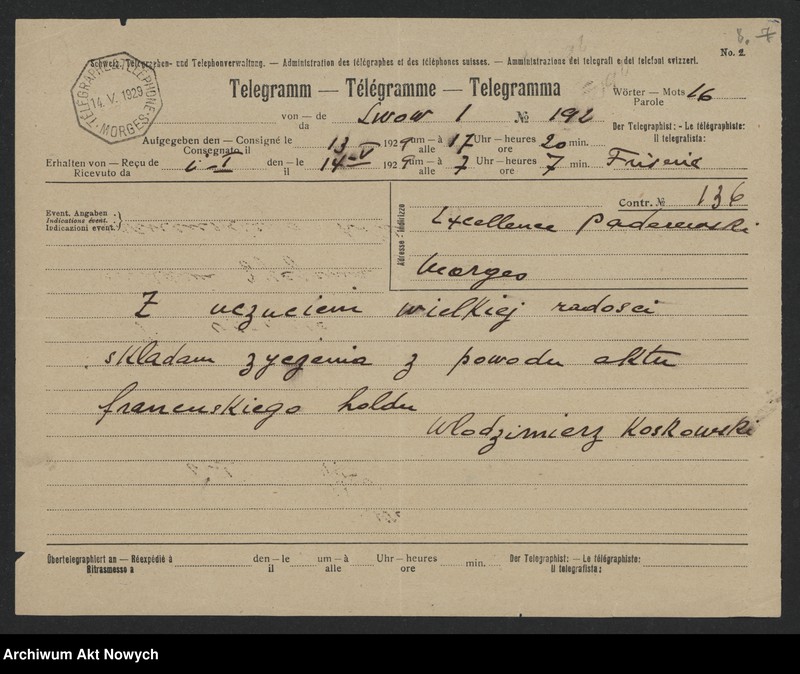 8. 7
No. 2
Schweiz. Telegraphen- und Telephonverwaltung. — Administration des télégraphes et des téléphones suisses. — Amministrazione dei telegrafi e dei telefoni svizzeri.
TÉLÉGRAPHE TÉLÉPHONE
14. V. 1929
MORGES
Telegramm — Télégramme — Telegramma
Wörter — Mots 16
Parole
von — de Lwow 1 № 192
da
Der Telegraphist: - Le télégraphiste:
Il telegrafista:
Aufgegeben den — Consigné le 13 1929 um — à 17 Uhr — heures 20 min.
Consegnato il alle ore
Erhalten von — Reçu de den — le 14 V 1929 um — à 7 Uhr — heures 7 min.
Ricevuto da il alle ore
Contr. № 136
Event. Angaben
Indications évent.
Indicazioni event.
Adresse - Indirizzo
Excellence Paderewski
Morges
Z uczuciem wielkiej radosci
skladam zyczenia z powodu aktu
francuskiego holdu
Wlodzimierz Koskowski
Übertelegraphiert an — Réexpédié à den — le um — à Uhr — heures min. Der Telegraphist: — Le télégraphiste:
Ritrasmesso a il alle ore Il telegrafista:
Archiwum Akt Nowych